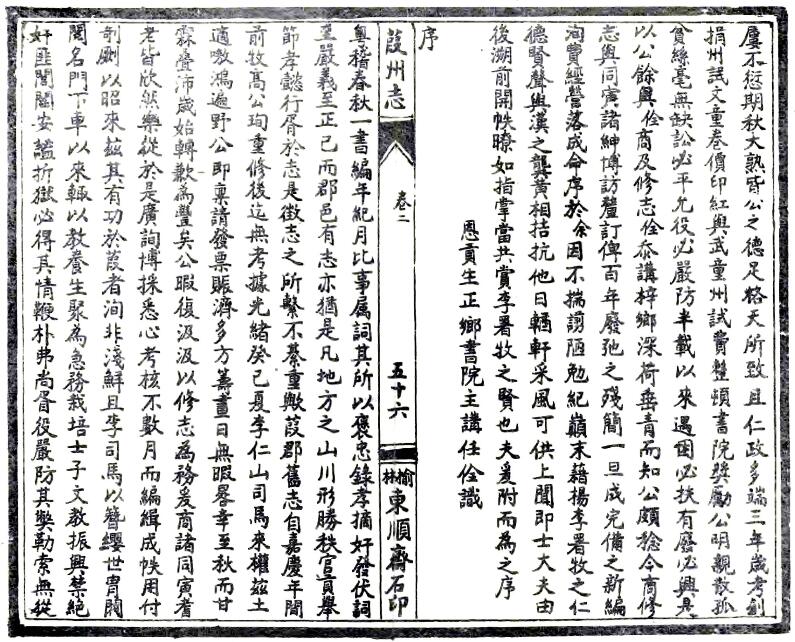 屢不愆期秋大熟昏公之德足格天所致且仁政多端三年歲考創
捐州試文童卷價印紅與武童州試費整頓書院獎勵公明親散孤
貧絲毫無缺訟必平允役必嚴防半載以來遇困必扶有廢必興是
以公餘與佺商及修志佺忝講梓鄉深荷垂青而知公頗稔今商修
志與同寅諸紳博訪釐訂俾百年廢弛之殘簡一旦成完備之新編
洵費經營落成命序於余因不揣謭陋勉紀巔末藉揚李署牧之仁
德賢聲與漢之龔黃相拮抗他日輶軒采風可供上聞即士大夫由
後溯前開帙瞭如指掌當共賞李署牧之賢也夫爰附而為之序
恩貢生正鄉書院主講任佺識
序
葭州志
卷二
五十六
榆林東順齋石印
粵稽春秋一書編年紀月比事属詞其所以褒忠錄孝摘奸發伏詞
至嚴義至正已而郡邑有志亦猶是凡地方之山川形勝秩官貢舉
節孝懿行胥於志是徵志之所繫不綦重歟葭郡舊志自嘉慶年間
前牧高公珣重修後迄無考據光緒癸已夏李仁山司馬來權茲土
適嗷鴻遍野公即稟請發票賑濟多方籌畫日無暇晷幸至秋而甘
霖疊沛歲始轉歉為豐矣公暇復汲汲以修志為務爰商諸同寅耆
老皆欣然樂從於是廣詢博採悉心考核不數月而編緝成帙用付
剞劂以昭來茲其有功於葭者洵非淺鮮且李司馬以簪纓世胄閥
閱名門下車以來輒以教養生聚為急務栽培士子文教振興禁絕
奸匪閭閻安謐折獄必得其情鞭朴弗尚胥役嚴防其弊勒索無從